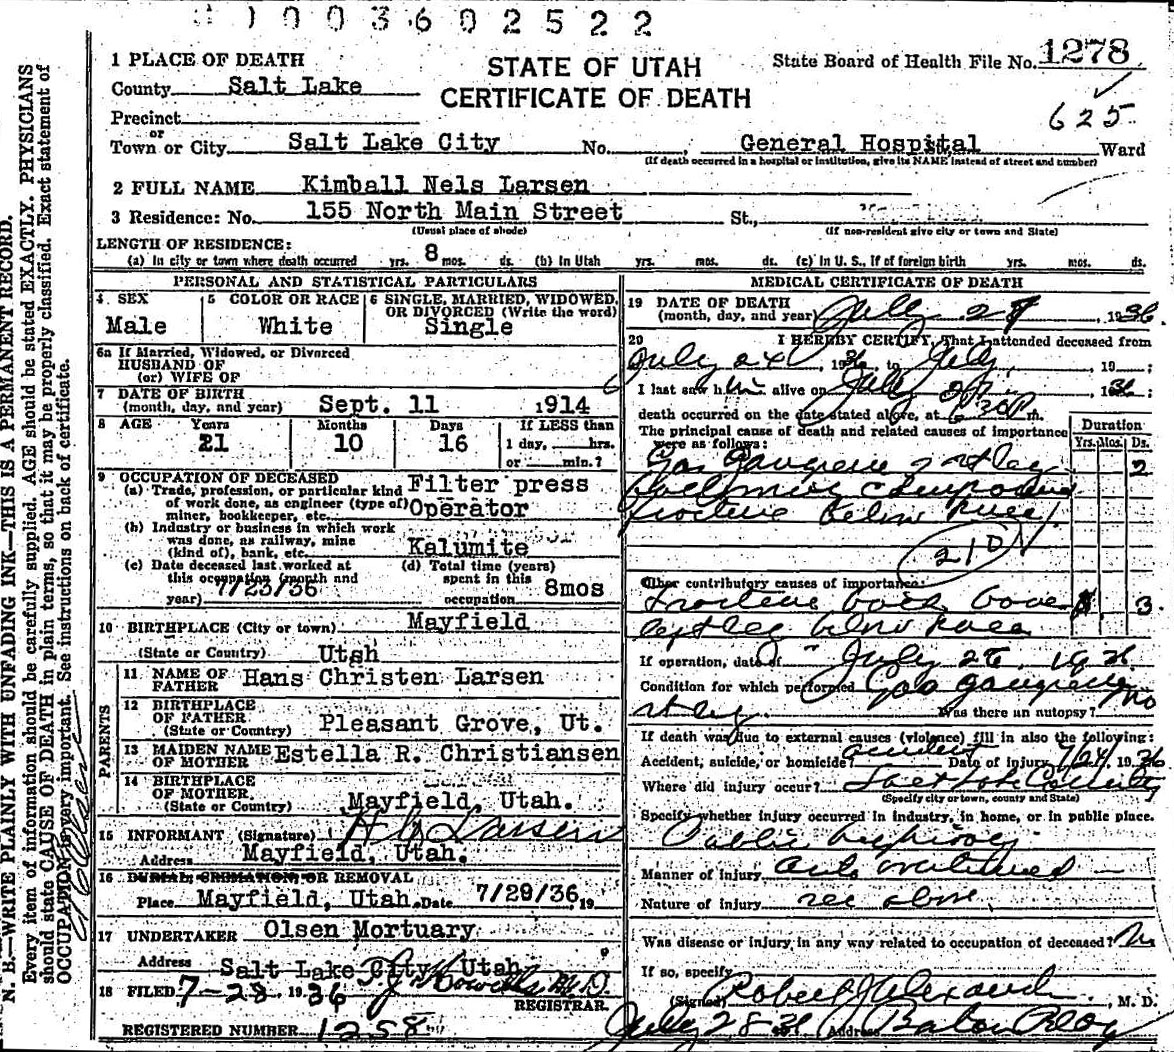 0 0 3 6 0 2 5 2 2
1 PLACE OF DEATH
County Salt Lake
Precinct
or
Town or City Salt Lake City No. , General Hospital Ward
(If death occurred in a hospital or institution, give its NAME instead of street and number)
STATE OF UTAH
CERTIFICATE OF DEATH
State Board of Health File No. 1278
625
2 FULL NAME Kimball Nels Larsen
3 Residence: No. 155 North Main Street St.,
(Usual place of abode) (If non-resident give city or town and State)
LENGTH OF RESIDENCE:
(a) In city or town where death occurred yrs. 8 mos. ds. (b) In Utah yrs. mos. ds. (c) In U. S., if of foreign birth yrs. mos. ds.
PERSONAL AND STATISTICAL PARTICULARS
4 SEX
Male
5 COLOR OR RACE
White
6 SINGLE, MARRIED, WIDOWED,
OR DIVORCED (Write the word)
Single
6a If Married, Widowed, or Divorced
HUSBAND OF
(or) WIFE OF
7 DATE OF BIRTH
(month, day, and year) Sept. 11 1914
8 AGE Years Months Days If LESS than
21 10 16 1 day, hrs.
or min.?
9 OCCUPATION OF DECEASED
(a) Trade, profession, or particular kind
of work done, as engineer (type of)
miner, bookkeeper, etc.
Filter press
Operator
(b) Industry or business in which work
was done, as railway, mine
(kind of), bank, etc. Kalumite
(c) Date deceased last worked at
this occupation (month and
year) 7/23/36
(d) Total time (years)
spent in this
occupation 8mos
10 BIRTHPLACE (City or town) Mayfield
(State or Country) Utah
PARENTS
11 NAME OF
FATHER Hans Christen Larsen
12 BIRTHPLACE
OF FATHER
(State or Country) Pleasant Grove, Ut.
13 MAIDEN NAME
OF MOTHER Estella R. Christiansen
14 BIRTHPLACE
OF MOTHER
(State or Country) Mayfield, Utah.
15 INFORMANT (Signature) Larsen
Address Mayfield, Utah.
16 BURIAL, CREMATION, OR REMOVAL
Place Mayfield, Utah. Date 7/29/36, 19
17 UNDERTAKER Olsen Mortuary
Address Salt Lake City, Utah
18 FILED 7-28 1936 M.D.
REGISTRAR
REGISTERED NUMBER 1258
MEDICAL CERTIFICATE OF DEATH
19 DATE OF DEATH
(month, day, and year) July 27, 1936
20 I HEREBY CERTIFY, That I attended deceased from
July 24, 1936, to July, 19 ;
I last saw him alive on July 27, 1936;
death occurred on the date stated above, at 6 30 P m.
The principal cause of death and related causes of importance
were as follows:
Duration
Yrs. Mos. Ds.
Gas Gangrene rt leg 2
following compound
fracture below knee
210
Other contributory causes of importance:
Fracture both bones 3
rt leg below knee
If operation, date of July 26 1936
Condition for which performed Gas gangrene
rt leg. Was there an autopsy? No
If death was due to external causes (violence) fill in also the following:
Accident, suicide, or homicide? accident Date of injury 7/24/, 1936
Where did injury occur? Salt Lake County
(Specify city or town, county and State)
Specify whether injury occurred in industry, in home, or in public place.
Public highway
Manner of injury Auto overturned
Nature of injury see above
Was disease or injury in any way related to occupation of deceased? No
If so, specify
(Signed) Robert J Alexander, M. D.
July 28-36 Address
N. B.—WRITE PLAINLY WITH UNFADING INK—THIS IS A PERMANENT RECORD.
Every item of information should be carefully supplied. AGE should be stated EXACTLY. PHYSICIANS
should state CAUSE OF DEATH in plain terms, so that it may be properly classified. Exact statement of
OCCUPATION is very important. See instructions on back of certificate.